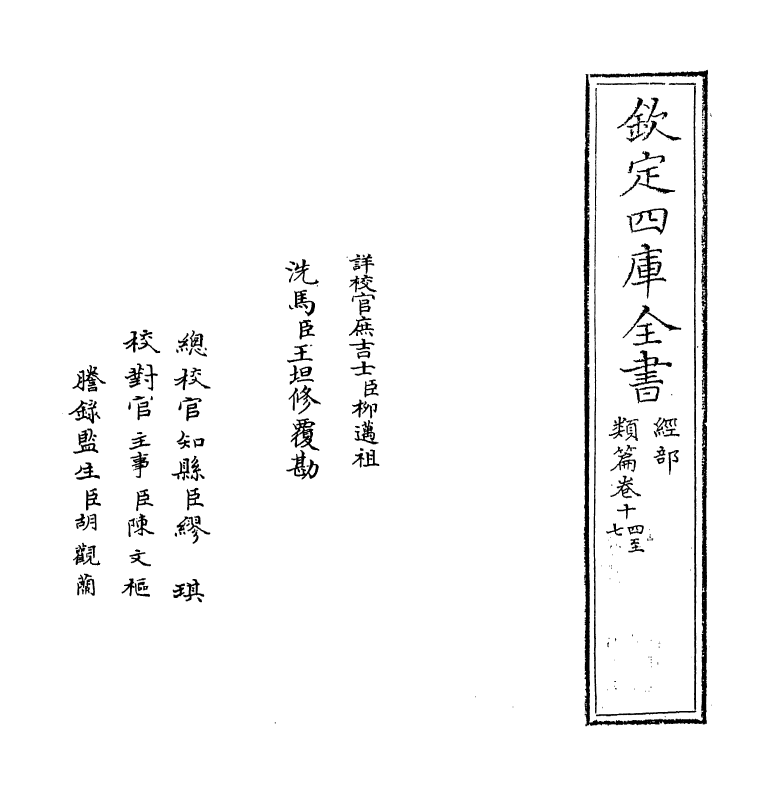 欽定四庫全書
經部
類篇卷十四至七
詳校官庶吉士臣柳邁祖
洗馬臣王坦修覆勘
總校官知縣臣繆琪
校對官主事臣陳文樞
謄録監生臣胡觀蘭